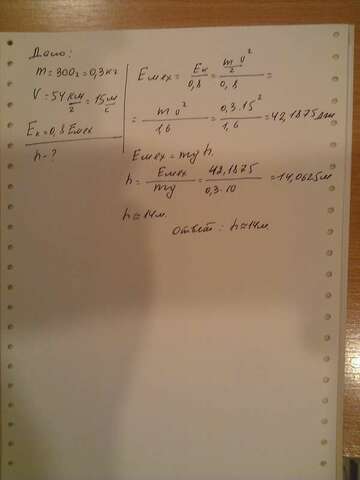 Дано:
m = 300г = 0,3 кг
V = 54 км/г = 15 м/с
Eк = 0,8 Eмех
h - ?
Eмех = Eк/0,8 = (m υ²/2)/0,8 =
= m υ²/1,6 = 0,3·15²/1,6 = 42,1875 Дж
Eмех = mgh
h = Eмех/mg = 42,1875/0,3·10 = 14,0625 м
h ≈ 14 м.
Ответ: h ≈ 14 м